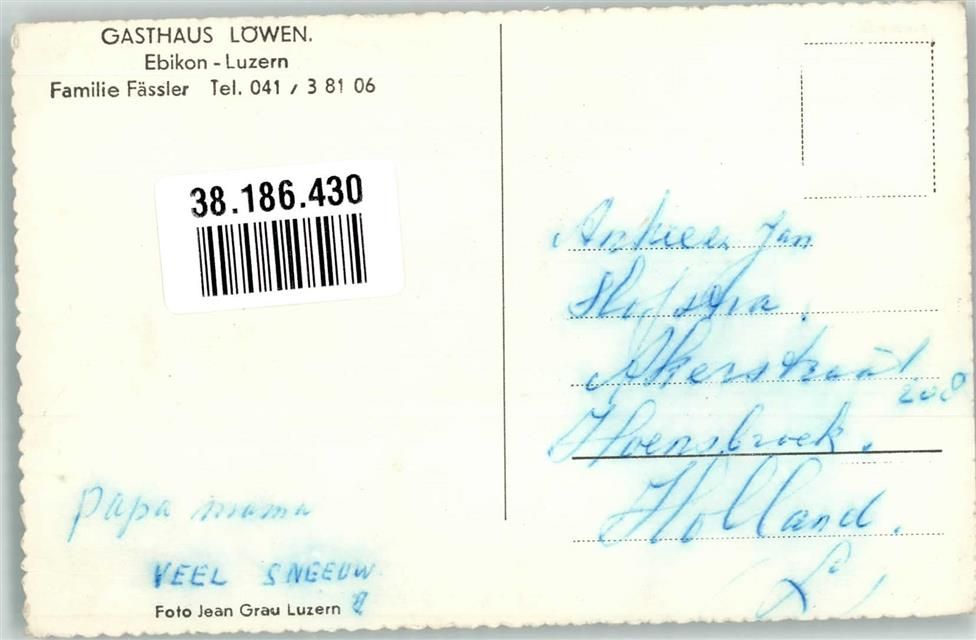 GASTHAUS LÖWEN.
Ebikon - Luzern
Familie Fässler Tel. 041 / 3 81 06
38.186.430
Jan
Hofstra.
Akerstraat
208
Hoensbroek.
Holland.
papa mama
VEEL SNEEUW
Foto Jean Grau Luzern